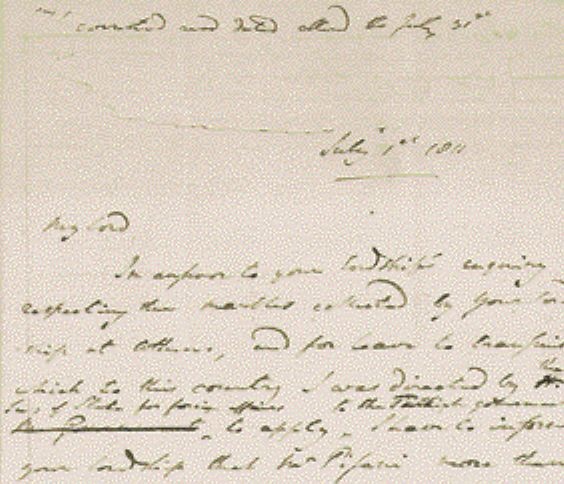 corrected and dated altered the July 31st
July 1st 1811
My Lord
In answer to your Lordship's enquiry
respecting the marbles collected by your Lord
ship at Athens, and for leave to transport
which to this country I was directed by the
Secy of State for foreign affairs to the Turkish government
to apply, I have to inform
your Lordship that Mr Pisani more than